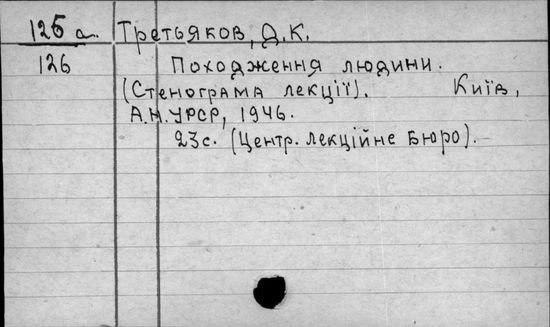 125 а. Третьяков, Д.К.
126 Походження людини.
(Стенограма лекції). Київ,
А.Н.УРСР, 1946.
23с. (Центр. лекційне Бюро).